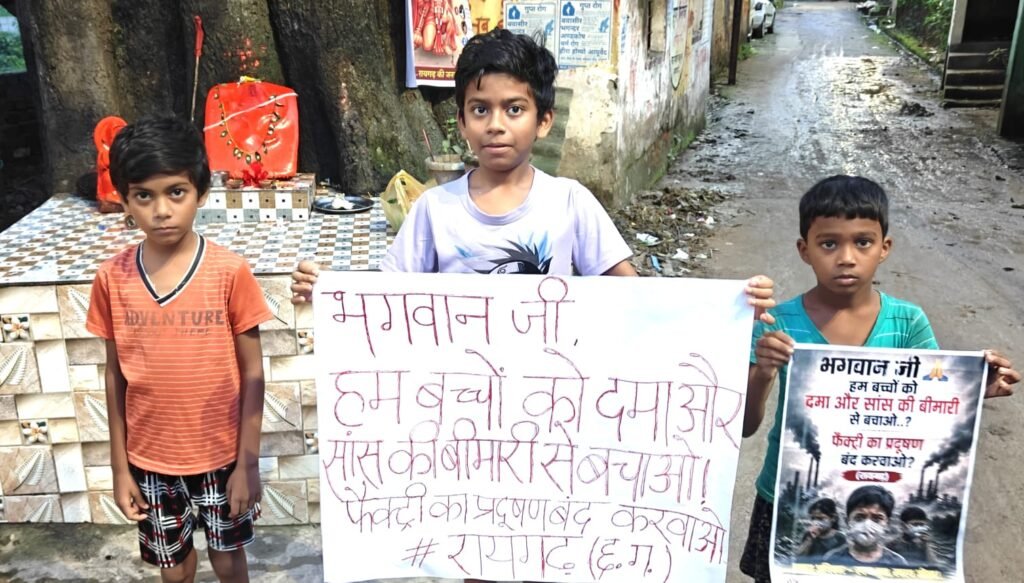 गुप्त रोग
गुप्त रोग
बवासीर
भगन्दर
रायगढ़ की जन
ADVENTURE
भगवान जी,
हम बच्चों को दमा और
सांस की बीमारी से बचाओ।
फैक्ट्री का प्रदूषण बंद करवाओ
# रायगढ़ (छ.ग.)
भगवान जी 🙏
हम बच्चों को
दमा और सांस की बीमारी
से बचाओ..?
फैक्ट्री का प्रदूषण
बंद करवाओ?
(रायगढ़)